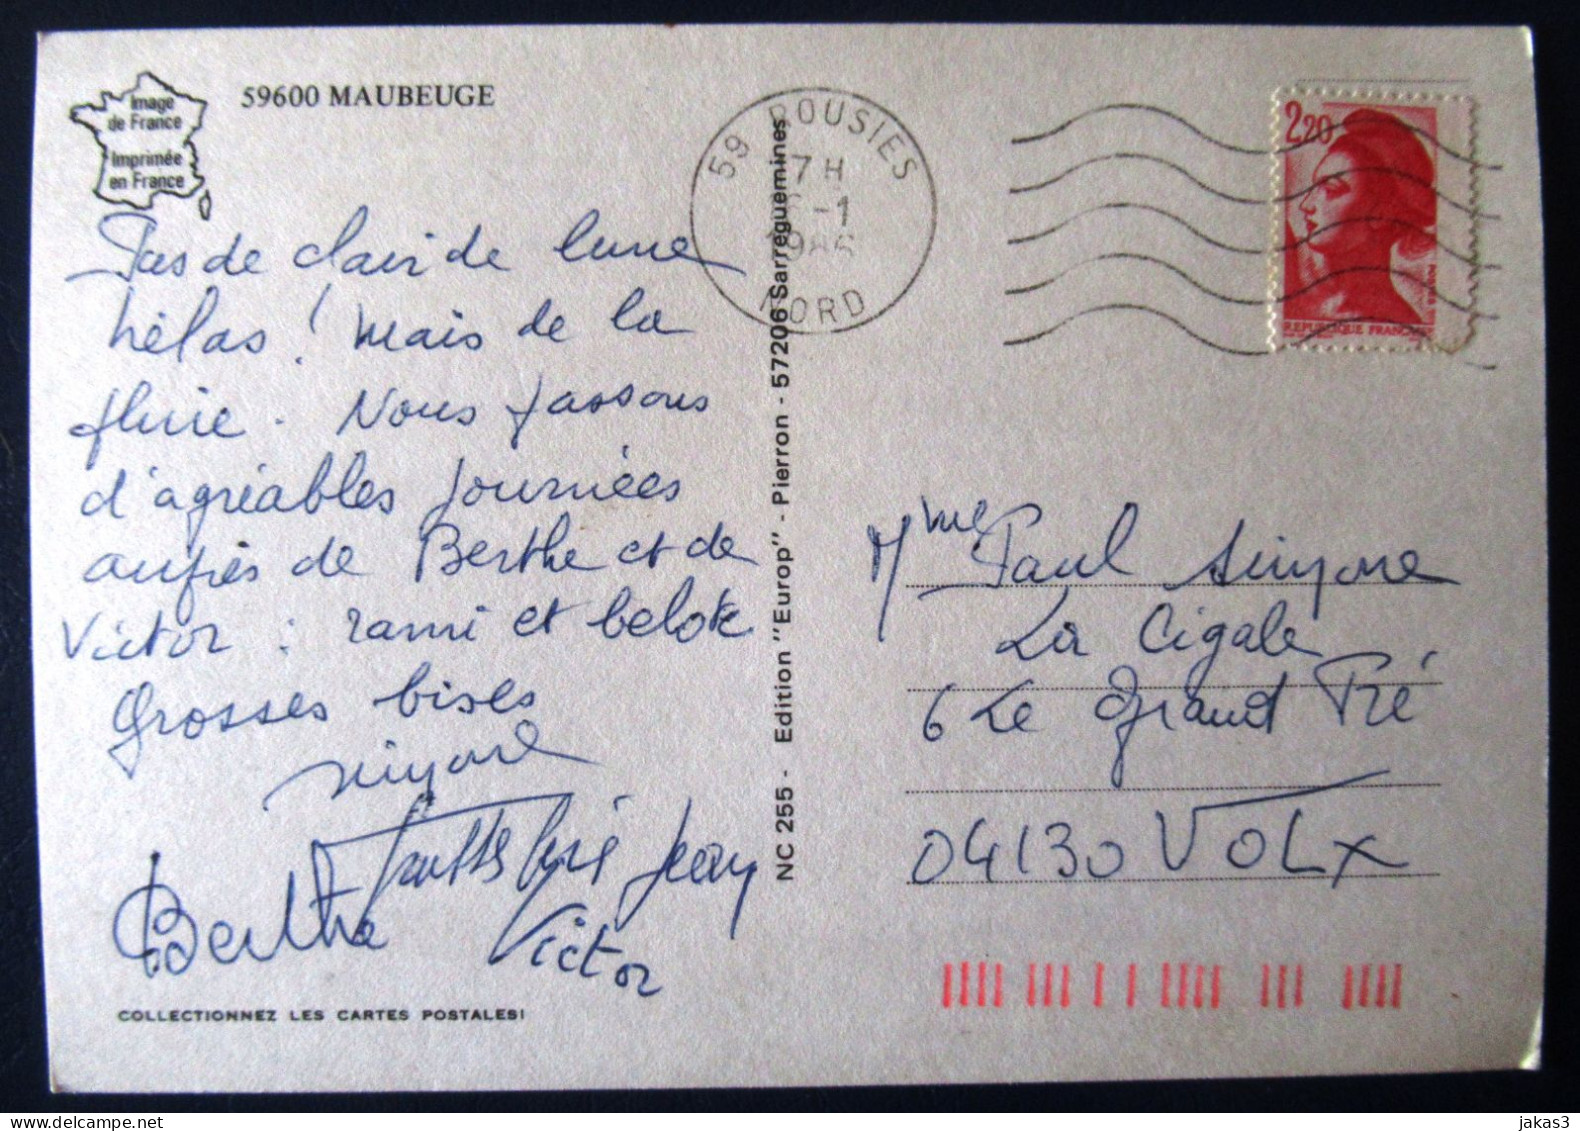 Image
de France
Imprimée
en France
59600 MAUBEUGE
Pas de clair de lune
hélas ! Mais de la
pluie. Nous passons
d'agréables journées
auprès de Berthe et de
Victor : rami et belote
Grosses bises
Jean
Berthe
Victor
COLLECTIONNEZ LES CARTES POSTALES!
NC 255 - Edition "Europ" - Pierron - 57206 Sarreguemines
59 ROUSIES
7H
6-1
1986
NORD
2,20
POSTES
REPUBLIQUE FRANCAISE
Mme Paul Simone
La Cigale
6 Le Grand Pré
04130 VOLX
jakas3